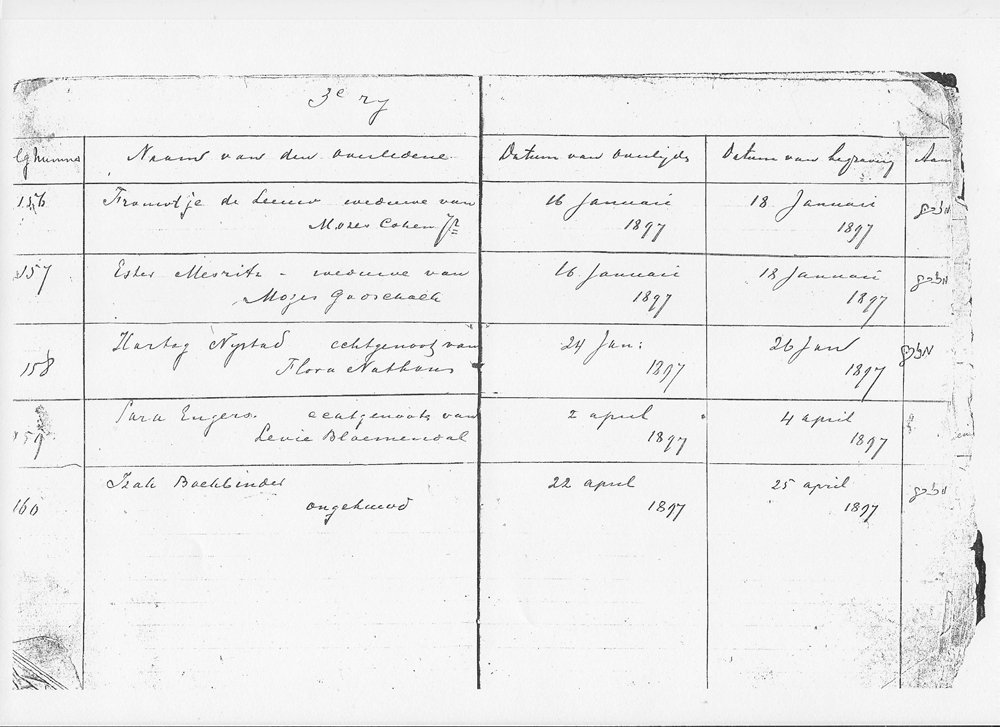 3e ry
Naam van den overledene. Datum van overlijden Datum van begraving Aan
156 Frouwtje de Leeuw weduwe van 16 Januari 18 Januari
Mozes Cohen Jr 1897 1897
157 Ester Mesritz - weduwe van 16 Januari 18 Januari
Mozes Godschalk 1897 1897
Hartog Nystad echtgenoot van 24 Jan: 26 Jan
158 Flora Nathans 1897 1897
Sara Engers. echtgenoote van 2 april 4 april
159 Levie Bloemendal 1897 1897
Izak Boekbinder 22 april 25 april
160 ongehuwd 1897 1897